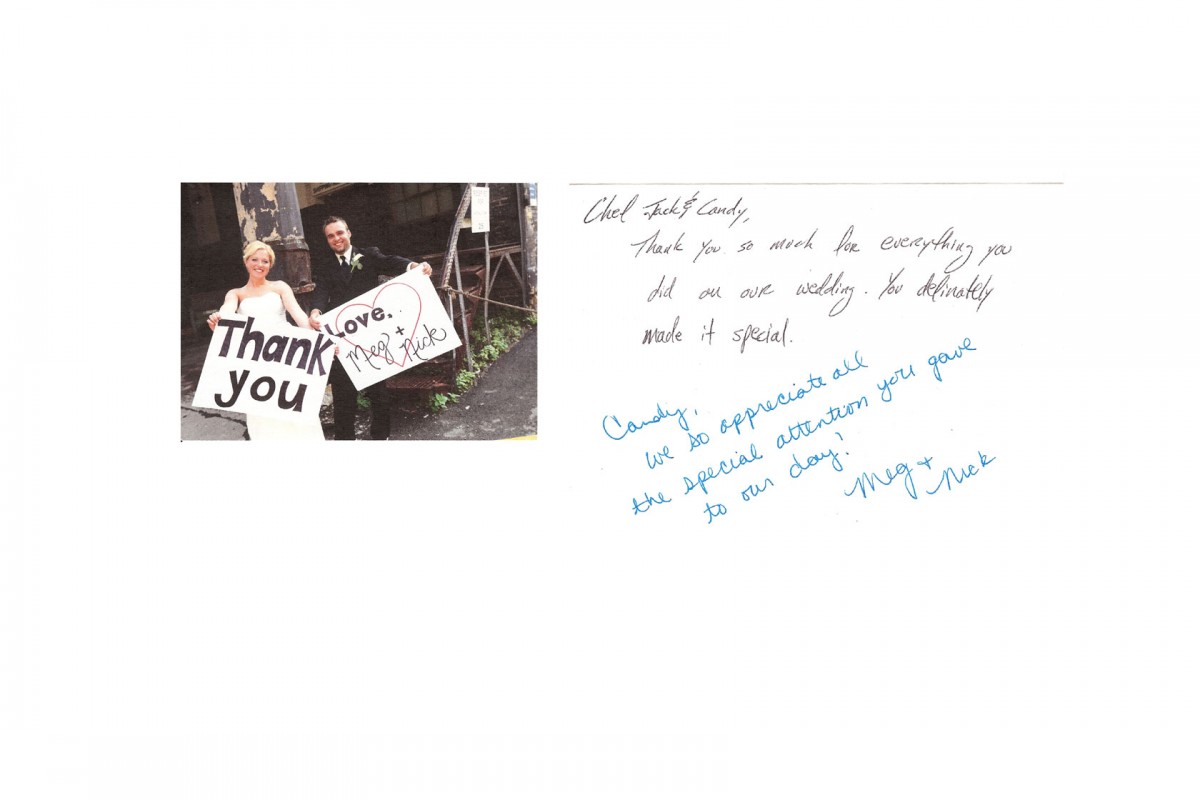 Thank
you
Love,
Meg +
Nick
Chef Jack & Candy,
Thank you so much for everything you
did on our wedding. You definately
made it special.
Candy,
we so appreciate all
the special attention you gave
to our day!
Meg +
Nick